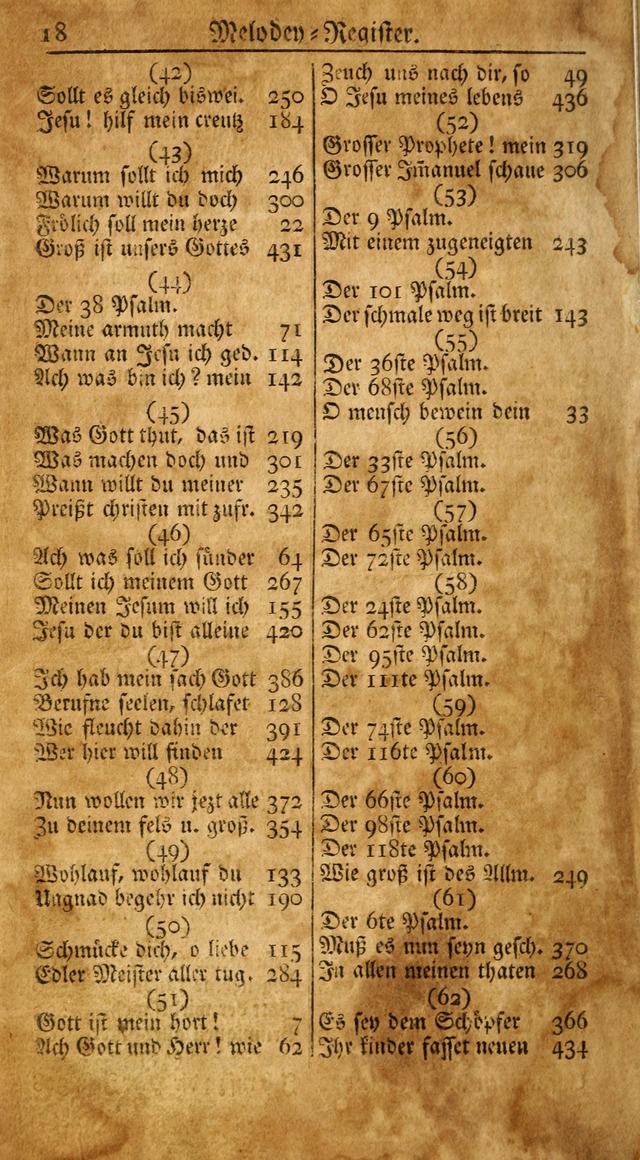 18 Melodey-Register.
(42)
Sollt es gleich biswei. 250
Jesu! hilf mein creutz 184
(43)
Warum sollt ich mich 246
Warum willt du doch 300
Frölich soll mein herze 22
Groß ist unsers Gottes 431
(44)
Der 38 Psalm.
Meine armuth macht 71
Wann an Jesu ich ged. 114
Ach was bin ich? mein 142
(45)
Was Gott thut, das ist 219
Was machen doch und 301
Wann willt du meiner 235
Preißt christen mit zufr. 342
(46)
Ach was soll ich sünder 64
Sollt ich meinem Gott 267
Meinen Jesum will ich 155
Jesu der du bist alleine 420
(47)
Ich hab mein sach Gott 386
Berufne seelen, schlafet 128
Wie fleucht dahin der 391
Wer hier will finden 424
(48)
Nun wollen wir jezt alle 372
Zu deinem fels u. groß. 354
(49)
Wohlauf, wohlauf du 133
Ungnad begehr ich nicht 190
(50)
Schmücke dich, o liebe 115
Edler Meister aller tug. 284
(51)
Gott ist mein hort! 7
Ach Gott und Herr! wie 62
Zeuch uns nach dir, so 49
O Jesu meines lebens 436
(52)
Grosser Prophete! mein 319
Grosser Im̄anuel schaue 306
(53)
Der 9 Psalm.
Mit einem zugeneigten 243
(54)
Der 101 Psalm.
Der schmale weg ist breit 143
(55)
Der 36ste Psalm.
Der 68ste Psalm.
O mensch bewein dein 33
(56)
Der 33ste Psalm.
Der 67ste Psalm.
(57)
Der 65ste Psalm.
Der 72ste Psalm.
(58)
Der 24ste Psalm.
Der 62ste Psalm.
Der 95ste Psalm.
Der 111te Psalm.
(59)
Der 74ste Psalm.
Der 116te Psalm.
(60)
Der 66ste Psalm.
Der 98ste Psalm.
Der 118te Psalm.
Wie groß ist des Allm. 249
(61)
Der 6te Psalm.
Muß es nun seyn gesch. 370
In allen meinen thaten 268
(62)
Es sey dem Schöpfer 366
Ihr kinder fasset neuen 434